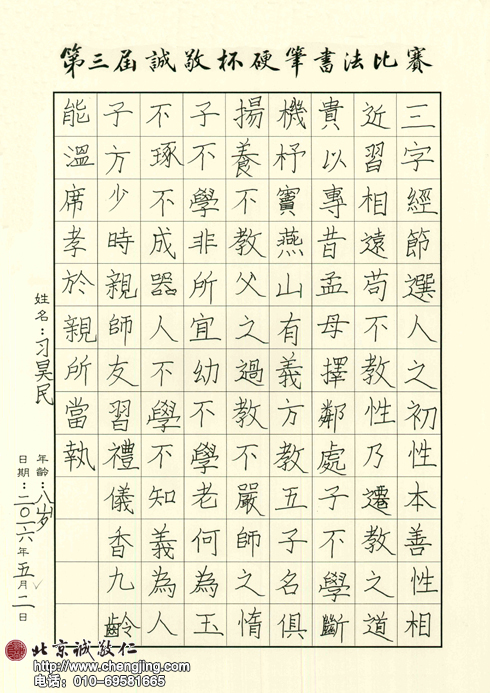 第三届誠敬杯硬筆書法比賽
三字經節選人之初性本善性相
近習相遠苟不教性乃遷教之道
貴以專昔孟母擇鄰處子不學斷
機杼竇燕山有義方教五子名俱
揚養不教父之過教不嚴師之惰
子不學非所宜幼不學老何為玉
不琢不成器人不學不知義為人
子方少時親師友習禮儀香九齡
能溫席孝於親所當執
姓名：习昊民
年齡：八岁
日期：二〇一六年五月二日
北京誠敬仁
http://www.chengjing.com
电话：010-69581665